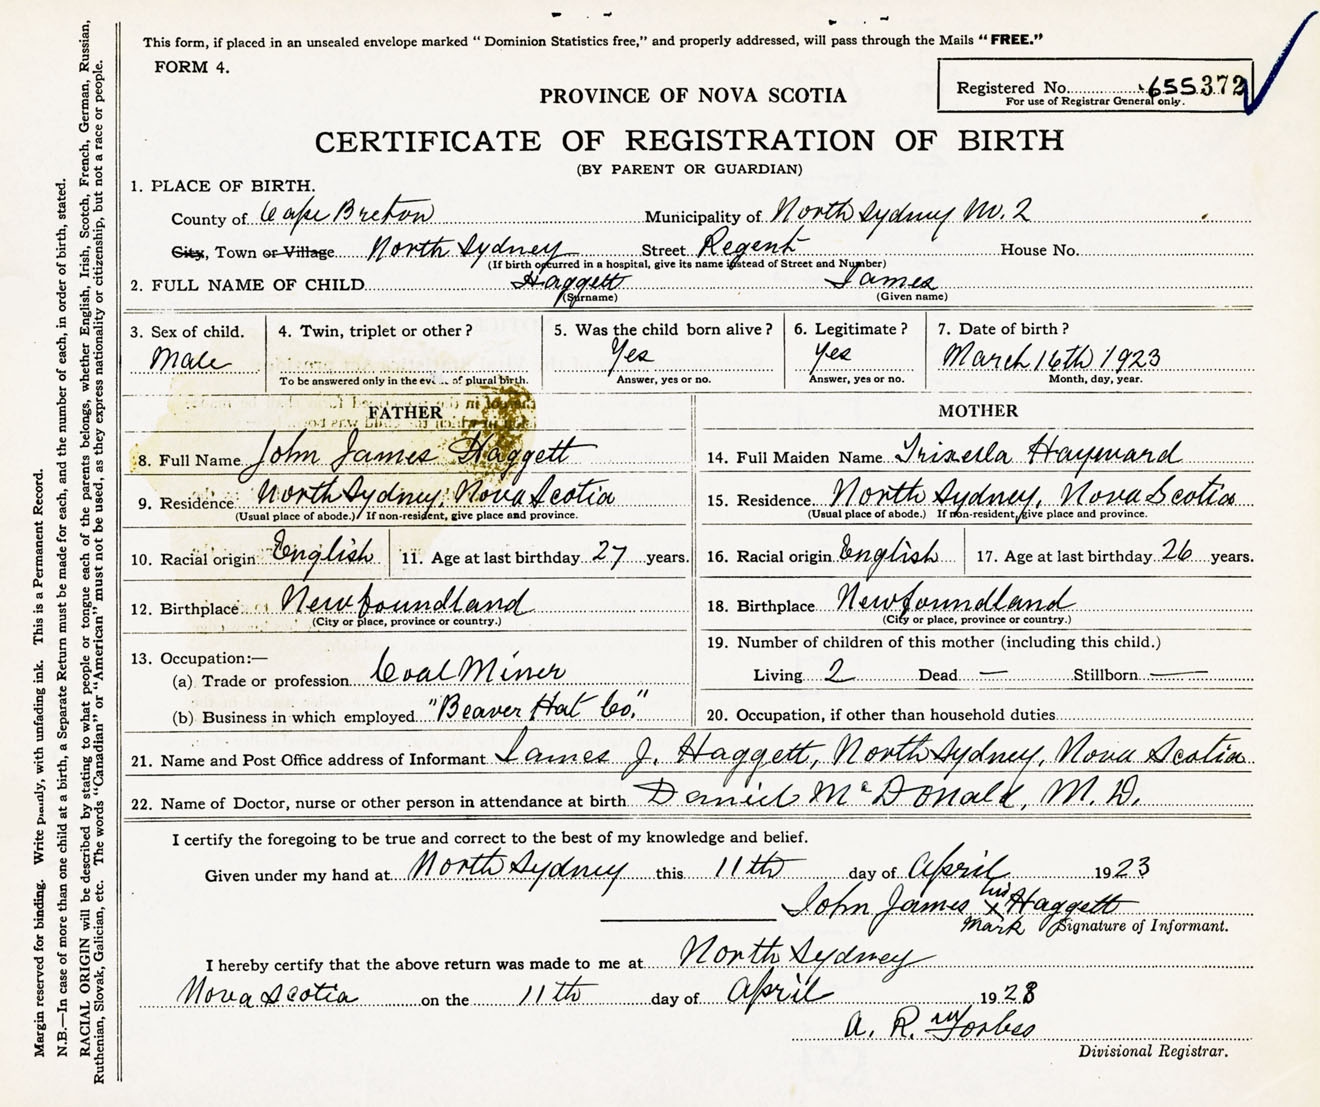 This form, if placed in an unsealed envelope marked " Dominion Statistics free," and properly addressed, will pass through the Mails " FREE."
FORM 4.
Registered No. 655372
For use of Registrar General only.
PROVINCE OF NOVA SCOTIA
CERTIFICATE OF REGISTRATION OF BIRTH
(BY PARENT OR GUARDIAN)
1. PLACE OF BIRTH.
County of Cape Breton Municipality of North Sydney No. 2
City, Town or Village North Sydney Street Regent House No.
(If birth occurred in a hospital, give its name instead of Street and Number)
2. FULL NAME OF CHILD Haggett James
(Surname) (Given name)
3. Sex of child. 4. Twin, triplet or other ? 5. Was the child born alive ? 6. Legitimate ? 7. Date of birth ?
Male Yes Yes March 16th 1923
To be answered only in the event of plural birth. Answer, yes or no. Answer, yes or no. Month, day, year.
FATHER MOTHER
8. Full Name John James Haggett 14. Full Maiden Name Hayward
9. Residence North Sydney, Nova Scotia 15. Residence North Sydney, Nova Scotia
(Usual place of abode.) If non-resident, give place and province. (Usual place of abode.) If non-resident, give place and province.
10. Racial origin English 11. Age at last birthday 27 years. 16. Racial origin English 17. Age at last birthday 26 years.
12. Birthplace Newfoundland 18. Birthplace Newfoundland
(City or place, province or country.) (City or place, province or country.)
13. Occupation:— 19. Number of children of this mother (including this child.)
(a) Trade or profession Coal Miner Living 2 Dead — Stillborn —
(b) Business in which employed "Beaver Hat Co." 20. Occupation, if other than household duties
21. Name and Post Office address of Informant James J. Haggett, North Sydney, Nova Scotia
22. Name of Doctor, nurse or other person in attendance at birth Daniel McDonald, M. D.
I certify the foregoing to be true and correct to the best of my knowledge and belief.
Given under my hand at North Sydney this 11th day of April 1923
John James his x Haggett
mark Signature of Informant.
I hereby certify that the above return was made to me at North Sydney
Nova Scotia on the 11th day of April 1923
A. R. Forbes
Divisional Registrar.
Margin reserved for binding. Write plainly, with unfading ink. This is a Permanent Record.
N.B.—In case of more than one child at a birth, a Separate Return must be made for each, and the number of each, in order of birth, stated.
RACIAL ORIGIN will be described by stating to what people or tongue each of the parents belongs, whether English, Irish, Scotch, French, German, Russian,
Ruthenian, Slovak, Galician, etc. The words "Canadian" or "American" must not be used, as they express nationality or citizenship, but not a race or people.